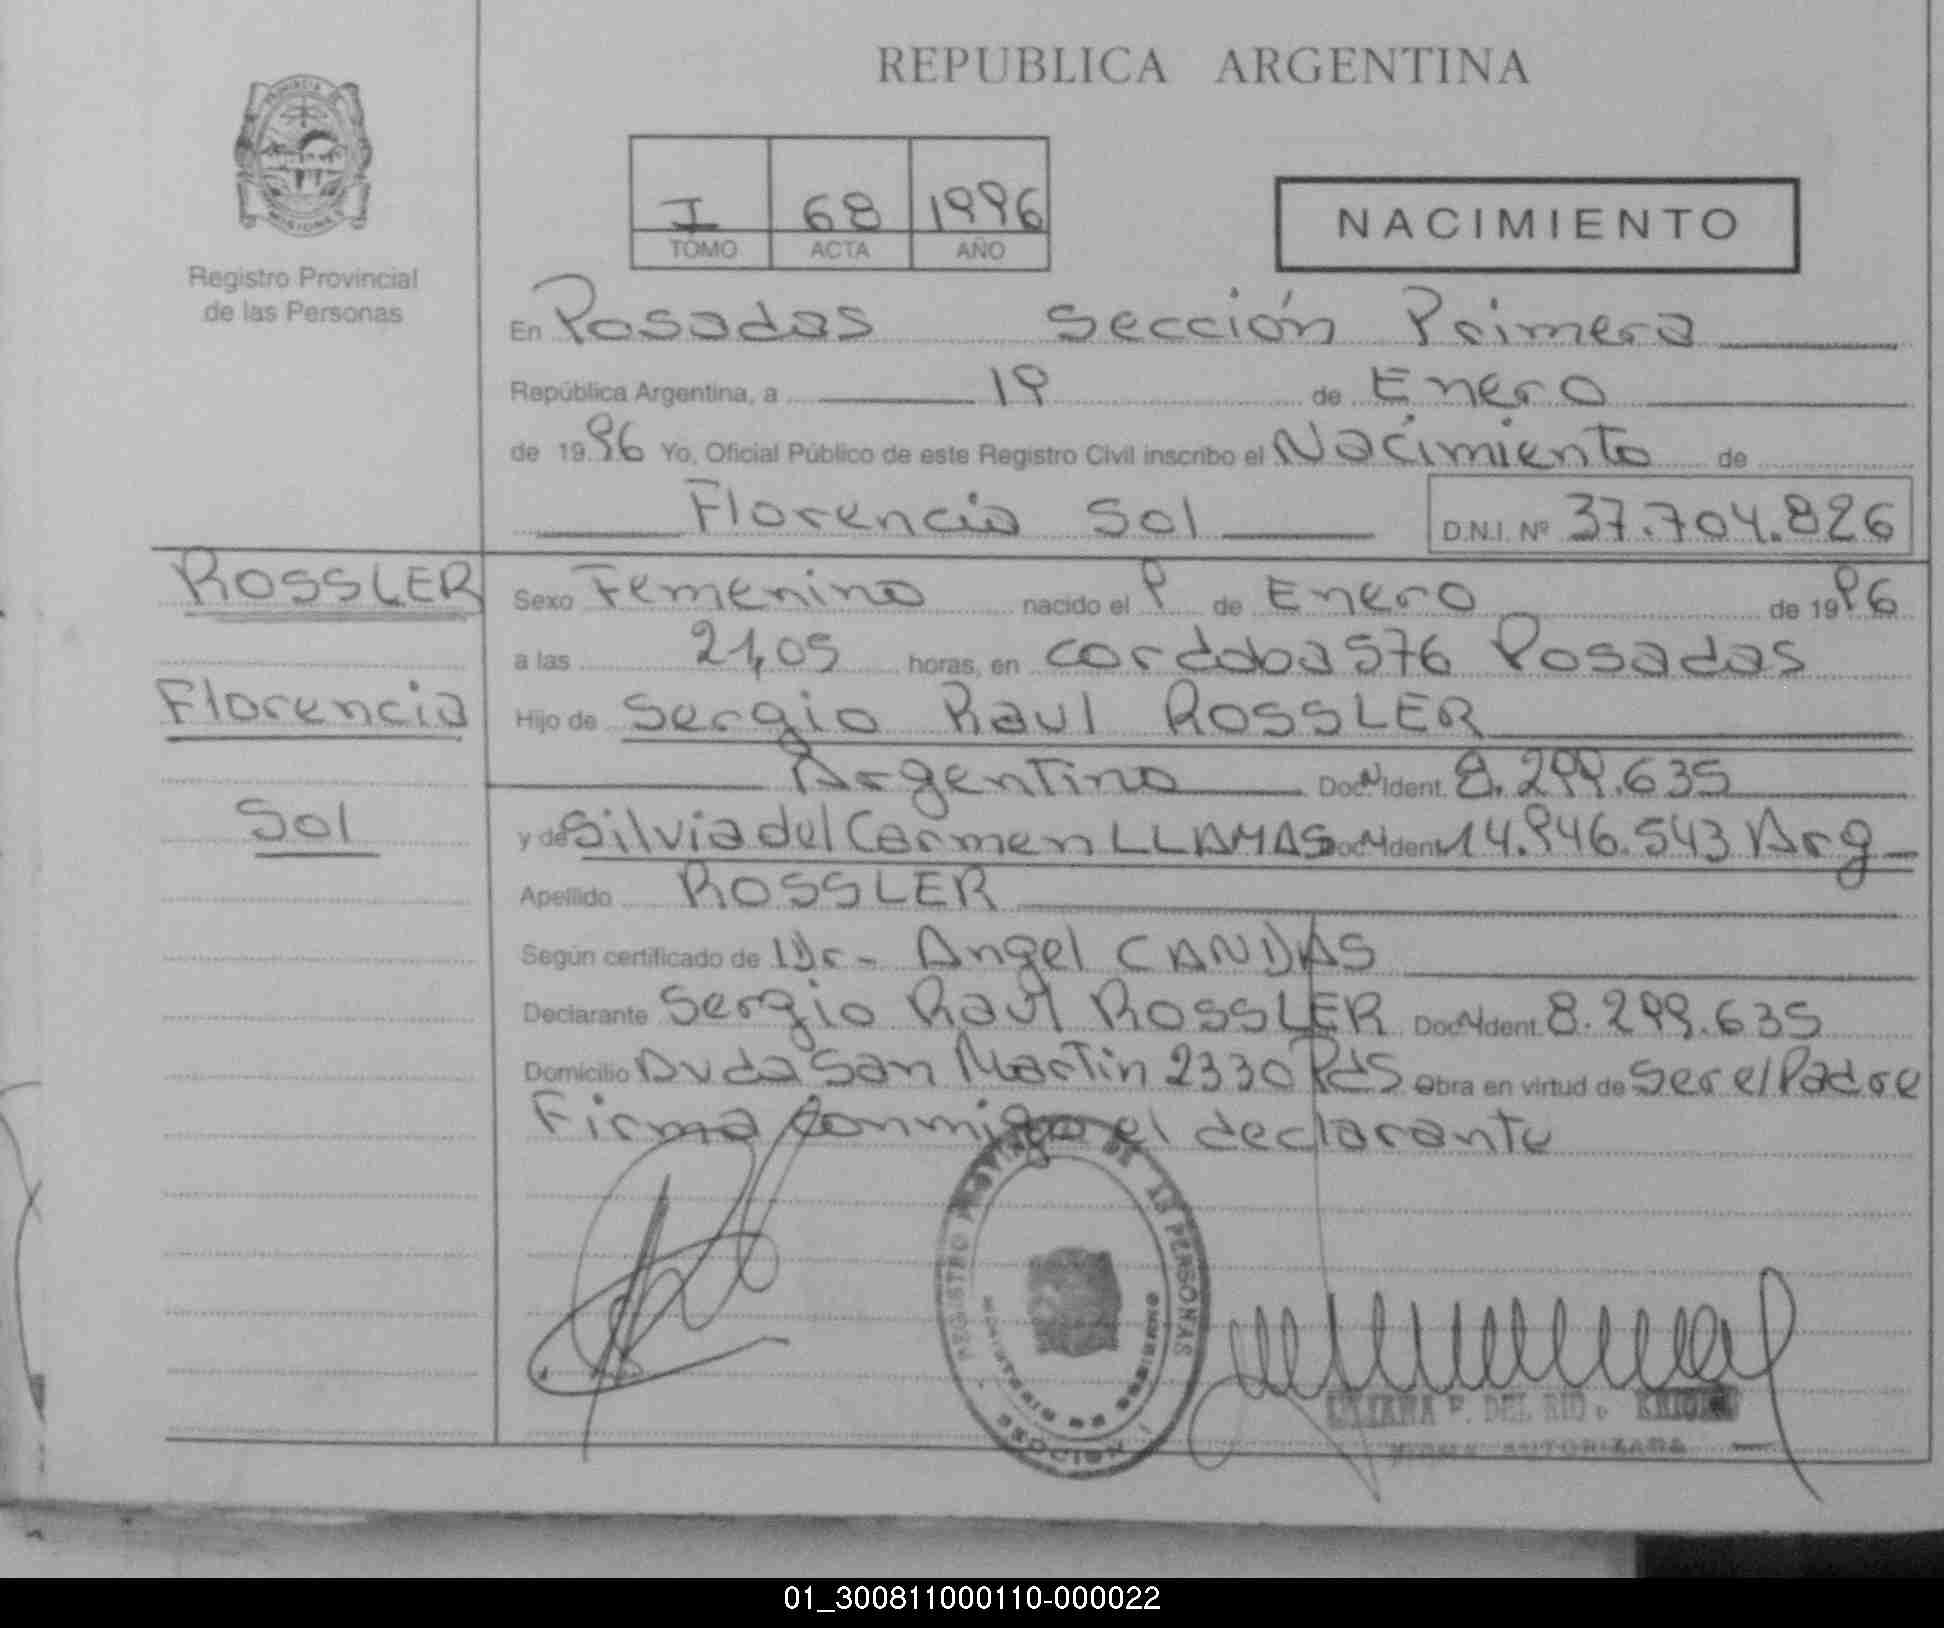 REPUBLICA ARGENTINA
PROVINCIA DE MISIONES
Registro Provincial
de las Personas
I 68 1996
TOMO ACTA AÑO
NACIMIENTO
En Posadas Sección Primera
República Argentina, a 19 de Enero
de 1996 Yo, Oficial Público de este Registro Civil inscribo el Nacimiento de
Florencia Sol D.N.I. Nº 37.704.826
ROSSLER
Florencia
Sol
Sexo Femenino nacido el 9 de Enero de 1996
a las 21,05 horas, en cordoba 576 Posadas
Hijo de Sergio Raul ROSSLER
Argentino Doc. N Ident. 8.299.635
y de Silvia del Carmen LLAMAS Doc. N Ident. 14.946.543 Arg
Apellido ROSSLER
Según certificado de Dr- Angel CANDAS
Declarante Sergio Raul ROSSLER Doc. N Ident. 8.299.635
Domicilio Avda San Martin 2330 Pds Obra en virtud de Ser el Padre
Firma conmigo el declarante
REGISTRO PROVINCIAL DE LAS PERSONAS
MINISTERIO DE GOBIERNO
SECCION 1
LILIANA F. DEL RIO
FIRMA AUTORIZADA
01_300811000110-000022